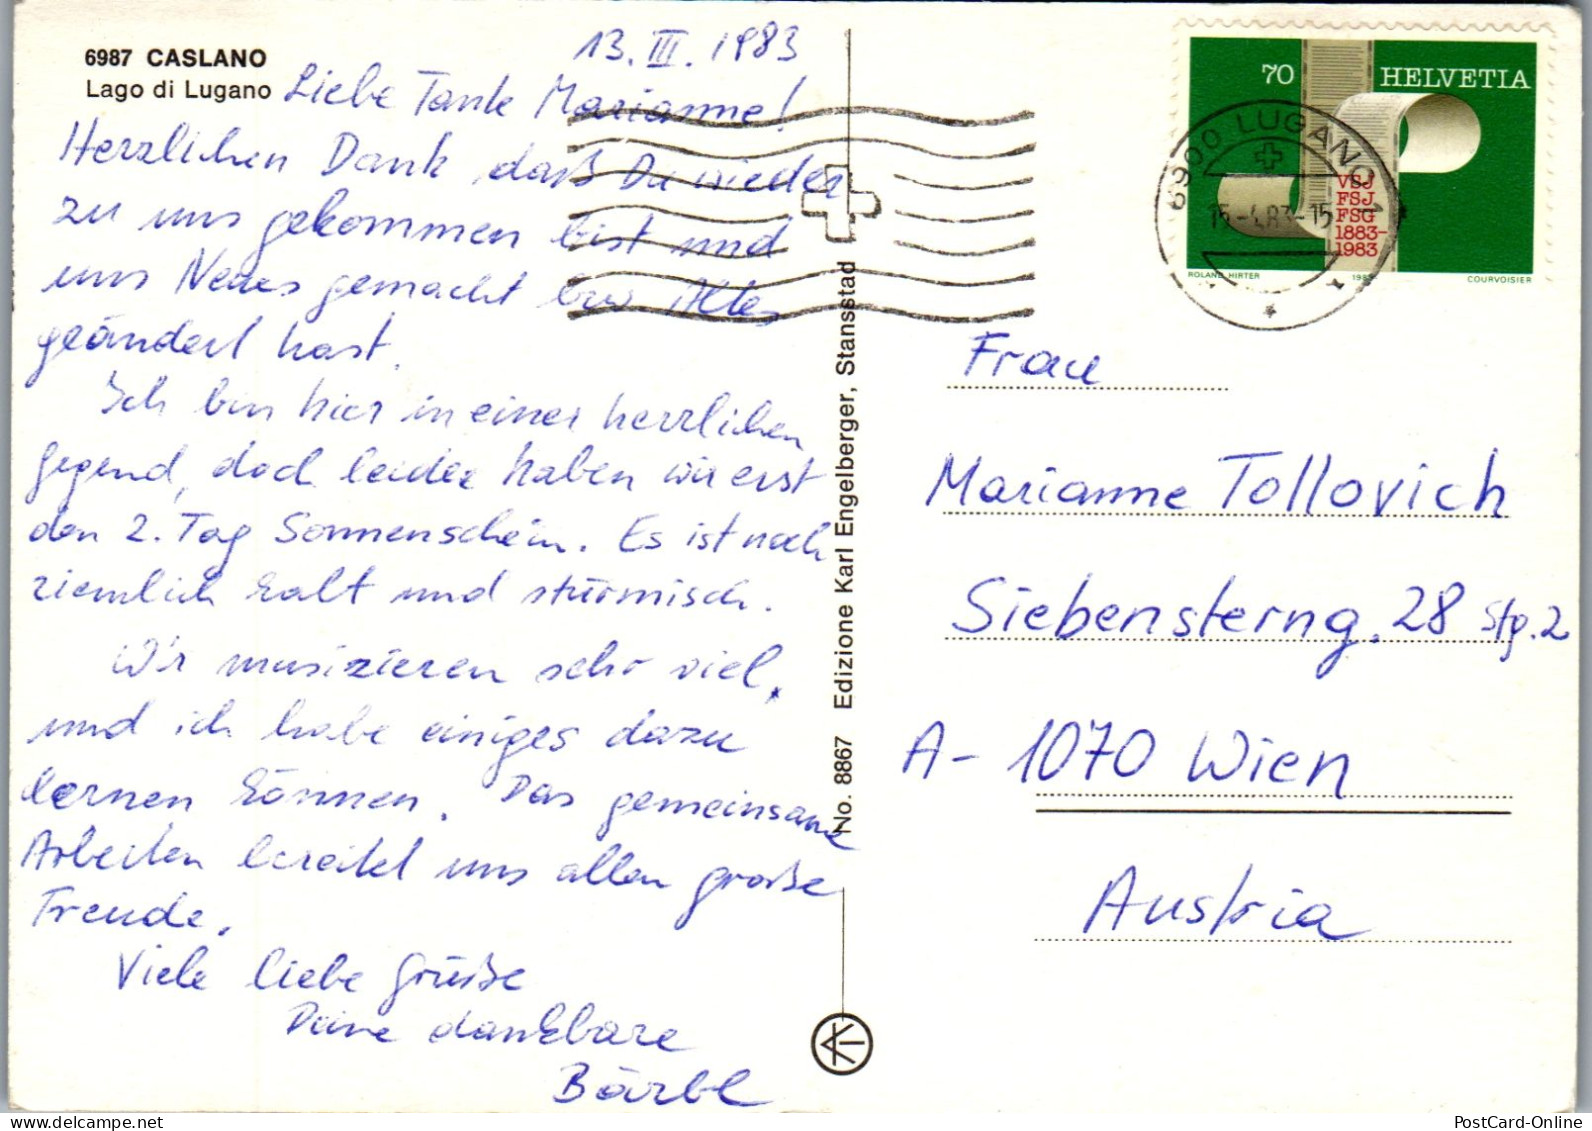 6987 CASLANO
Lago di Lugano
13. III. 1983
Liebe Tante Marianne!
Herzlichen Dank, daß Du wieder
zu uns gekommen bist und
uns Neues gemacht bzw Altes
geändert hast.
Ich bin hier in einer herrlichen
Gegend, doch leider haben wir erst
den 2. Tag Sonnenschein. Es ist noch
ziemlich kalt und stürmisch.
Wir musizieren sehr viel,
und ich habe einiges dazu
lernen können. Das gemeinsame
Arbeiten bereitet uns allen große
Freude.
Viele liebe Grüße
Deine dankbare
Bärbl
No. 8867 Edizione Karl Engelberger, Stansstad
70 HELVETIA
VSJ
FSJ
FSG
1883-
1983
ROLAND HIRTER 1983 COURVOISIER
6900 LUGANO 1
15-4.83-15
Frau
Marianne Tollovich
Siebensterng. 28 Stg. 2
A-1070 Wien
Austria
PostCard-Online